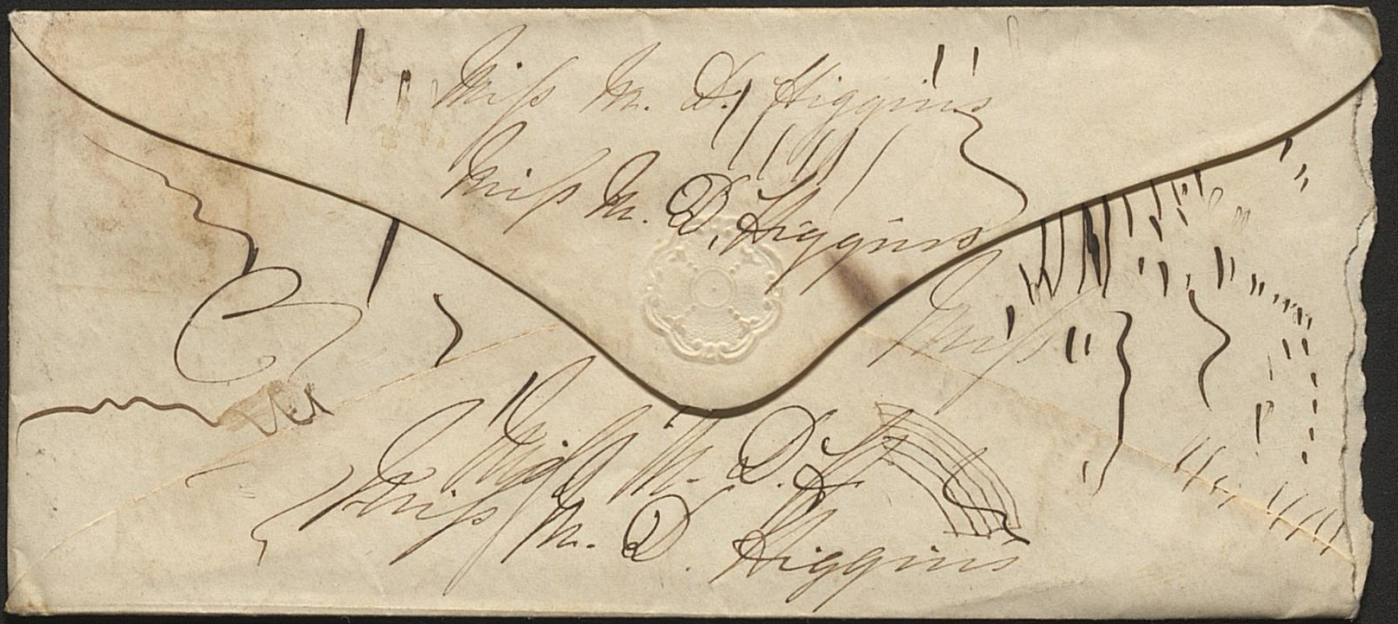 Miss M. D. Higgins
Miss M. D. Higgins
Miss
Miss M. D. H
Miss M. D. Higgins